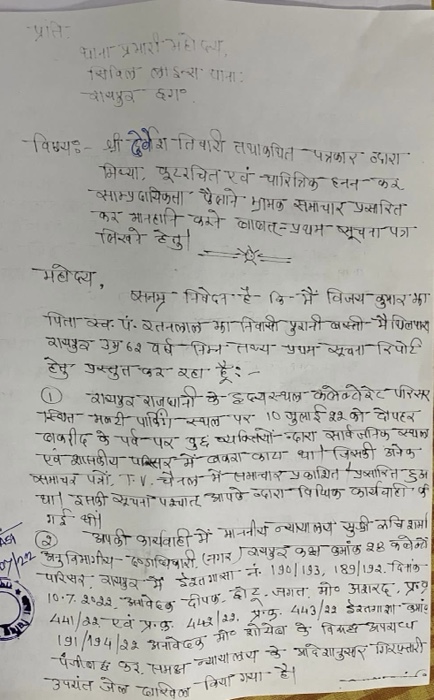 प्रति,
थाना प्रभारी महोदय,
सिविल लाइन्स थाना:
रायपुर छ॰ग॰
विषय:- श्री देवेश तिवारी तथाकथित पत्रकार द्वारा
मिथ्या, कूटरचित एवं चारित्रिक हनन कर
साम्प्रदायिकता फैलाने भ्रामक समाचार प्रसारित
कर मानहानि करने बाबत्=प्रथम सूचना पत्र
लिखने हेतु।
महोदय,
सनम्र निवेदन है कि मैं विजय कुमार झा
पिता स्व. पं. रतनलाल झा निवासी पुरानी बस्ती मैथिलपारा
रायपुर उम्र 62 वर्ष निम्न तथ्य प्रथम सूचना रिपोर्ट
हेतु प्रस्तुत कर रहा हूँ:-
① रायपुर राजधानी के हृदयस्थल कलेक्टोरेट परिसर
स्थित मल्टी पार्किंग स्थल पर 10 जुलाई 22 को दोपहर
बकरीद के पर्व पर कुछ व्यक्तियों द्वारा सार्वजनिक स्थल
एवं शासकीय परिसर में बकरा काटा था। जिसकी अनेक
समाचार पत्रों, T.V. चैनल में समाचार प्रकाशित, प्रसारित हुआ
था। इसकी सूचना पश्चात् आपके द्वारा विधिक कार्यवाही की
गई थी।
② आपकी कार्यवाही में माननीय न्यायालय सुश्री रुचि शर्मा
अनुविभागीय दण्डाधिकारी (नगर) रायपुर कक्ष क्रमांक 28 कलेक्टो
परिसर, रायपुर में ईस्तगासा नं. 190/193, 189/192 दिनांक
10.7.2022 अनावेदक दीपक, जगत, मो॰ अशरद, प्र.क्र.
441/22 एवं प्र.क्र. 442/22, प्र.क्र. 443/22 ईस्तगासा क्रमांक
191/194/22 अनावेदक मो॰ शोयेब के विरूद्ध अपराध
पंजीबद्ध कर समक्ष न्यायालय के आदेशानुसार गिरफ्तारी
उपरांत जेल दाखिल किया गया है।